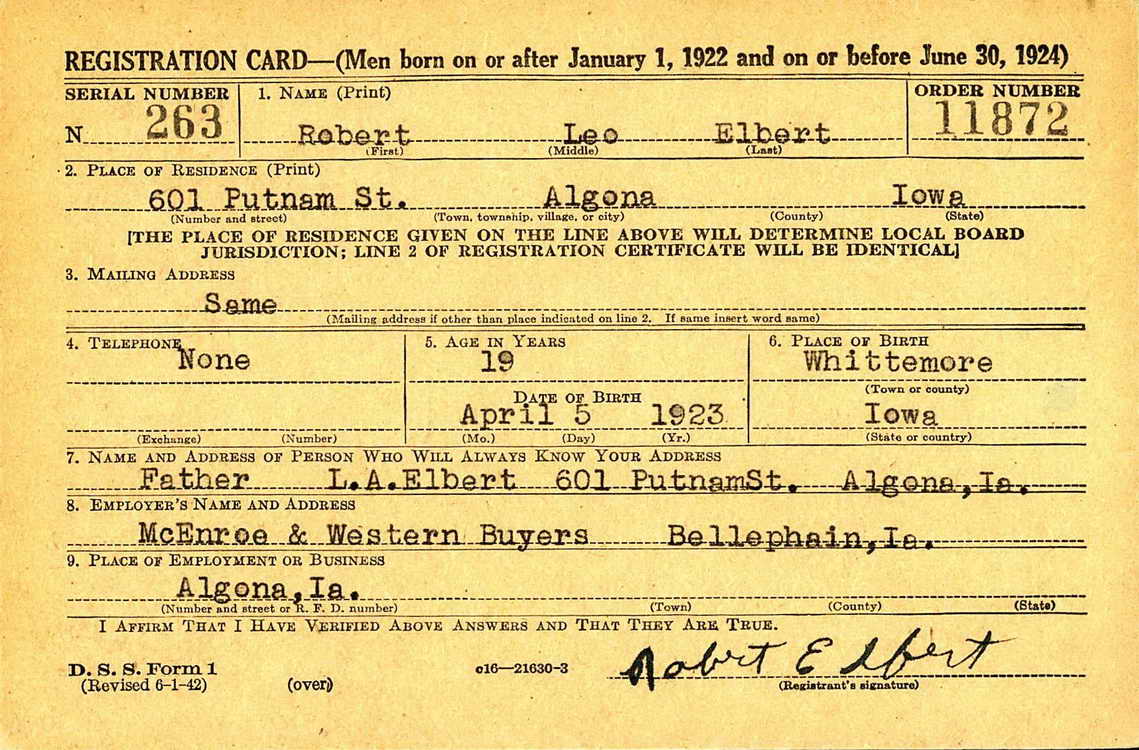 REGISTRATION CARD—(Men born on or after January 1, 1922 and on or before June 30, 1924)
SERIAL NUMBER 1. NAME (Print) ORDER NUMBER
N 263 Robert Leo Elbert 11872
(First) (Middle) (Last)
2. PLACE OF RESIDENCE (Print)
601 Putnam St. Algona Iowa
(Number and street) (Town, township, village, or city) (County) (State)
[THE PLACE OF RESIDENCE GIVEN ON THE LINE ABOVE WILL DETERMINE LOCAL BOARD
JURISDICTION; LINE 2 OF REGISTRATION CERTIFICATE WILL BE IDENTICAL]
3. MAILING ADDRESS
Same
(Mailing address if other than place indicated on line 2. If same insert word same)
4. TELEPHONE 5. AGE IN YEARS 6. PLACE OF BIRTH
None 19 Whittemore
DATE OF BIRTH (Town or county)
April 5 1923 Iowa
(Exchange) (Number) (Mo.) (Day) (Yr.) (State or country)
7. NAME AND ADDRESS OF PERSON WHO WILL ALWAYS KNOW YOUR ADDRESS
Father L.A.Elbert 601 PutnamSt. Algona,Ia.
8. EMPLOYER'S NAME AND ADDRESS
McEnroe & Western Buyers Bellephain,Ia.
9. PLACE OF EMPLOYMENT OR BUSINESS
Algona,Ia.
(Number and street or R. F. D. number) (Town) (County) (State)
I AFFIRM THAT I HAVE VERIFIED ABOVE ANSWERS AND THAT THEY ARE TRUE.
D. S. S. Form 1 c16—21630-3 Robert Elbert
(Revised 6-1-42) (over) (Registrant's signature)